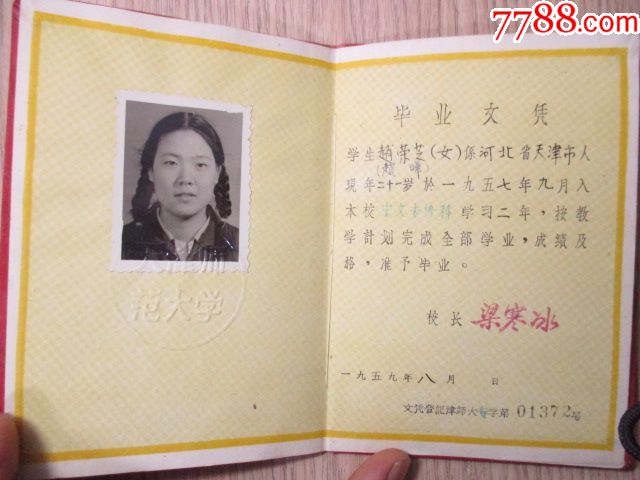 7788.com
毕业文凭
学生趙荣芝(女)係河北省天津市人
(趙 )
現年二十一岁於一九五七年九月入
本校 学习二年,按教
学計划完成全部学业,成绩及
格,准予毕业。
校长 梁寒冰
一九五九年八月 日
文凭登記津师大专字第01372号
范大学